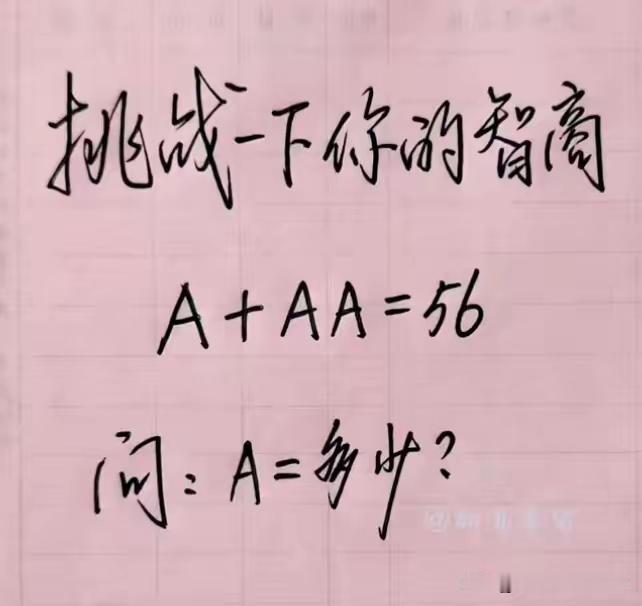 挑战一下你的智商
A+AA=56
问：A=多少？